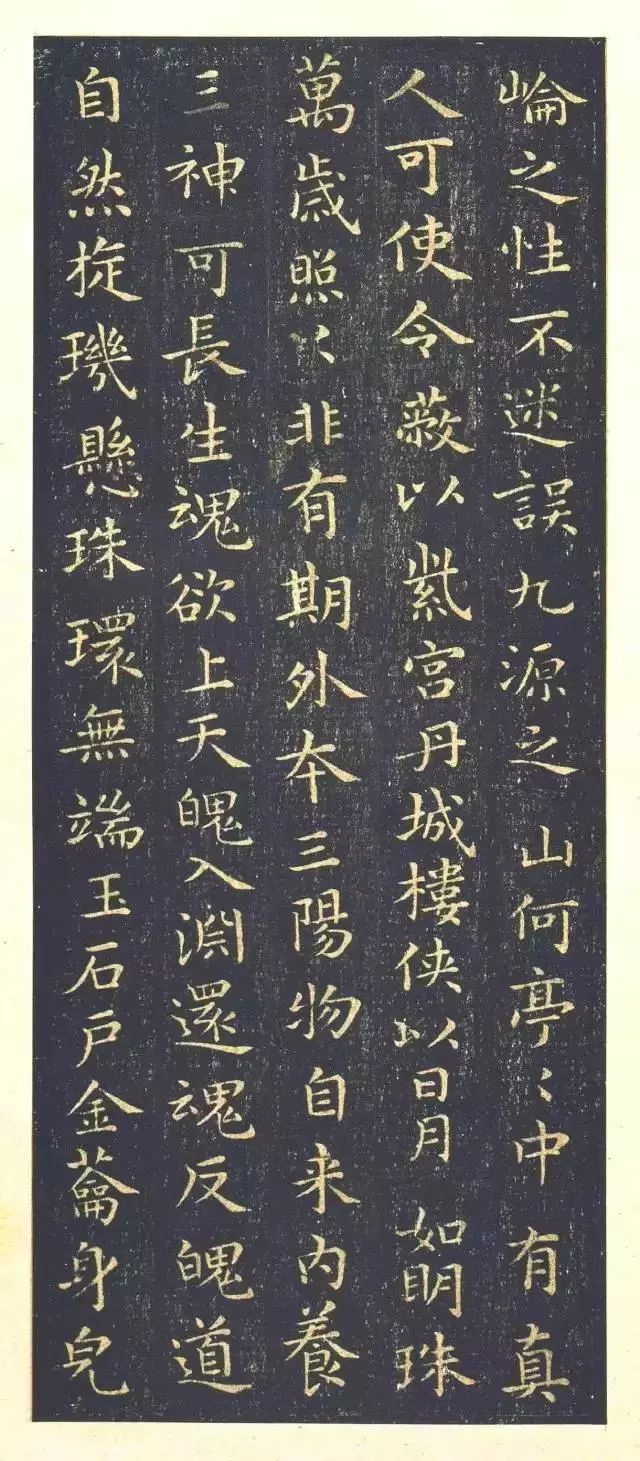 崘之性不迷誤九源之山何亭〻中有真
人可使令蔽以紫宮丹城樓侠以日月如明珠
萬歲照〻非有期外本三陽物自来内養
三神可長生魂欲上天魄入淵還魂反魄道
自然㧕璣懸珠環無端玉石戶金蘥身皃